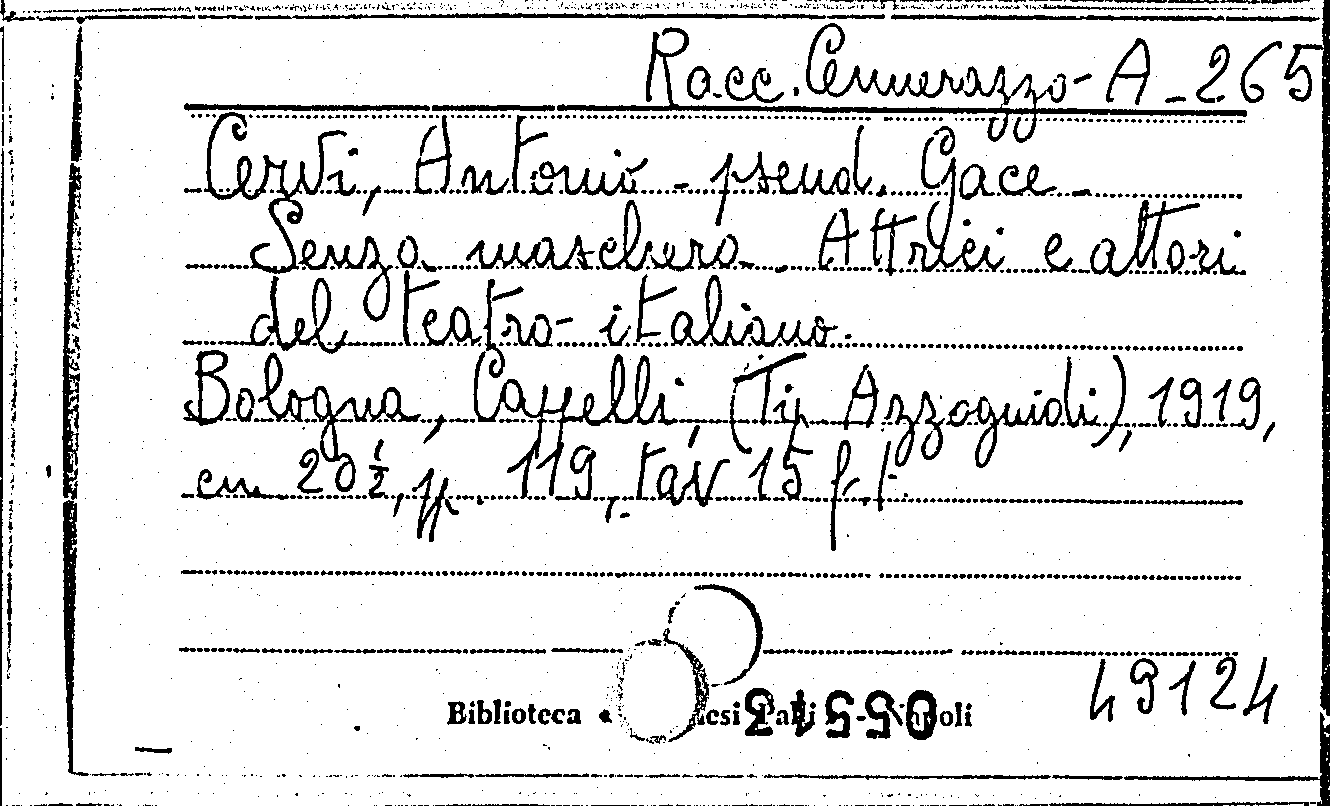 Racc. Cennerazzo - A - 265
Cervi, Antonio - pseud. Gace -
Senza maschera. Attrici e attori
del teatro italiano.
Bologna, Cappelli, (Tip. Azzoguidi), 1919,
cm. 20 ½, pp. 119, tav 15 f.t.
49124
Biblioteca «